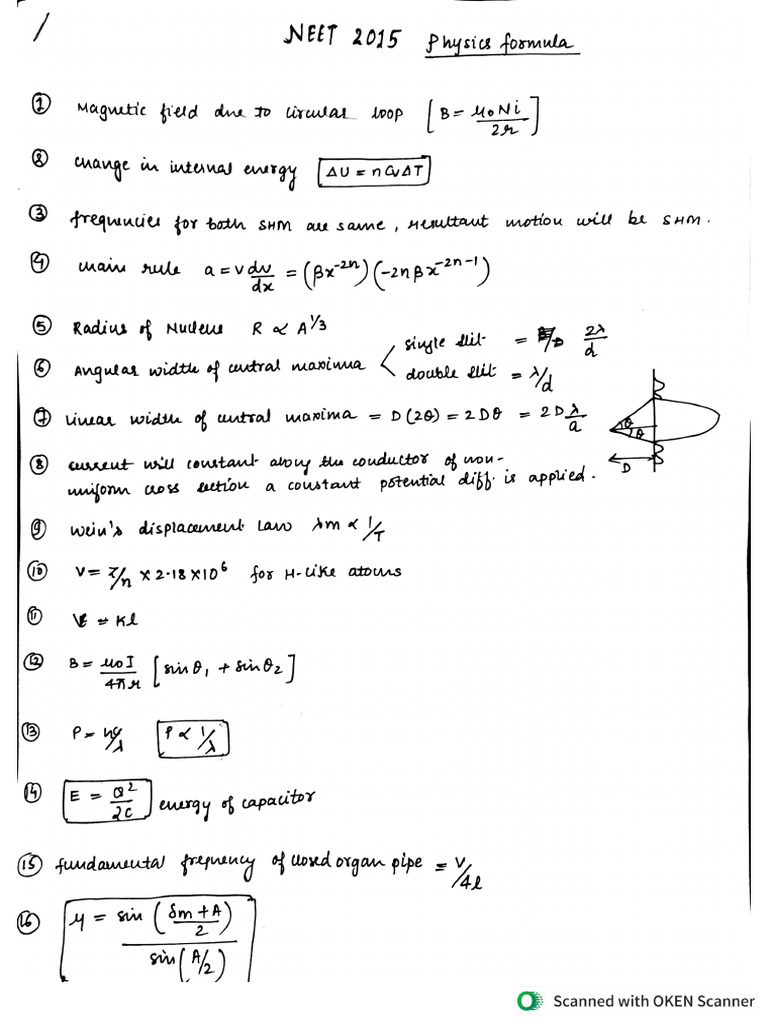 1
NEET 2015 Physics formula
① Magnetic field due to circular loop [B = μ₀Ni/2r]
② change in internal energy ΔU = nCvΔT
③ frequencies for both SHM are same, resultant motion will be SHM.
④ main rule a = v dv/dx = (βx⁻²ⁿ)(-2nβx⁻²ⁿ⁻¹)
⑤ Radius of Nucleus R ∝ A^1/3
⑥ Angular width of central maxima < single slit = 2λ/d
double slit = λ/d
⑦ linear width of central maxima = D(2θ) = 2Dθ = 2Dλ/a
θ
θ
D
⑧ current will constant along the conductor of non-
uniform cross section a constant potential diff. is applied.
⑨ Wein's displacement Law λm ∝ 1/T
⑩ V = Z/n × 2.18 × 10⁶ for H-like atoms
⑪ = Kl
⑫ B = μ₀I/4πr [sinθ₁ + sinθ₂]
⑬ P = /λ P ∝ 1/λ
⑭ E = Q²/2C energy of capacitor
⑮ fundamental frequency of closed organ pipe = V/4l
⑯ μ = sin(δm+A/2)/sin(A/2)
Scanned with OKEN Scanner